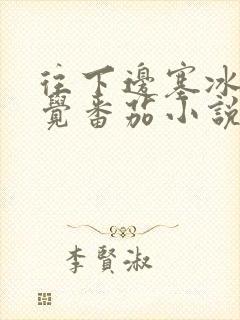 往下邊塞冰
覺番茄小說
李賢淑